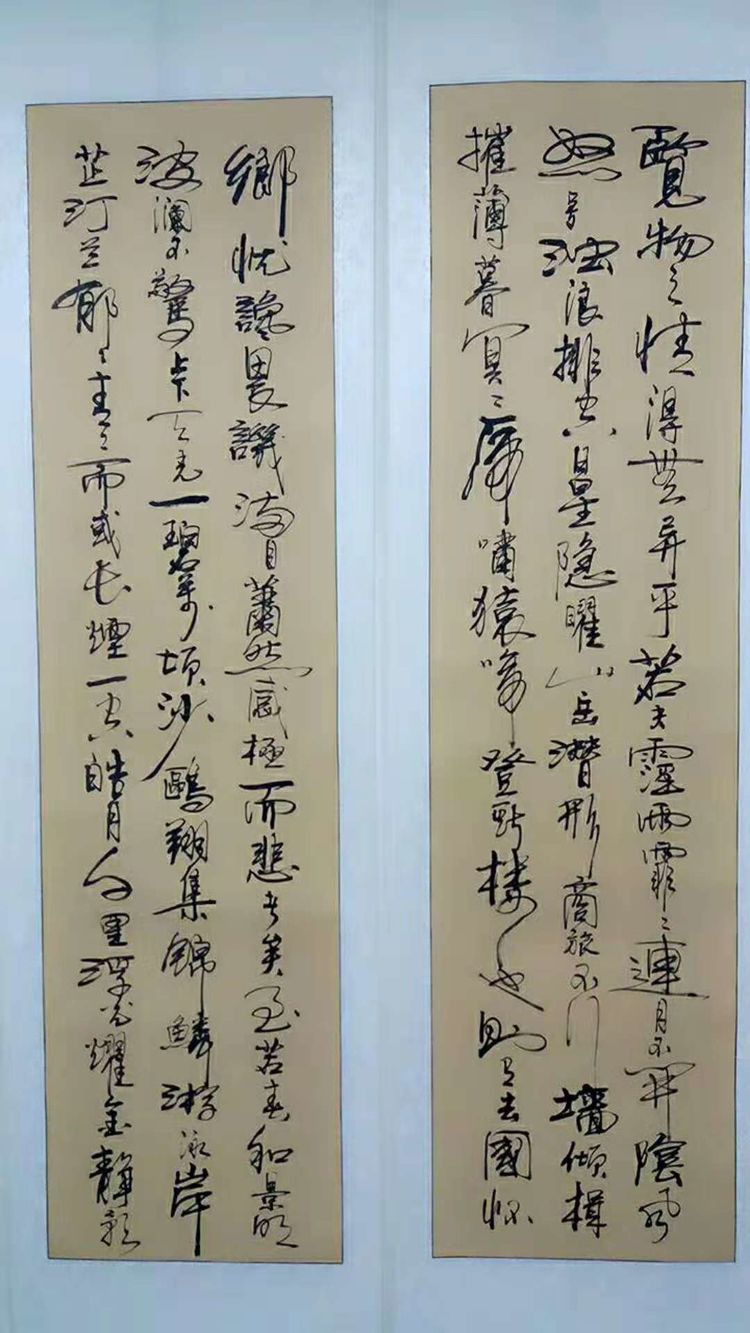 覽物之情得無异乎若夫霪雨霏〻連月不開陰風
怒号浊浪排空日星隐曜山岳潜形商旅不行墙倾楫
摧薄暮冥〻虎嘯猿啼登斯楼也則有去國怀
鄉忧讒畏譏满目蕭然感極而悲者矣至若春和景明
波瀾不驚上下天光一碧萬頃沙鷗翔集錦鱗游泳岸
芷汀兰郁〻青〻而或长煙一空皓月千里浮光耀金静影